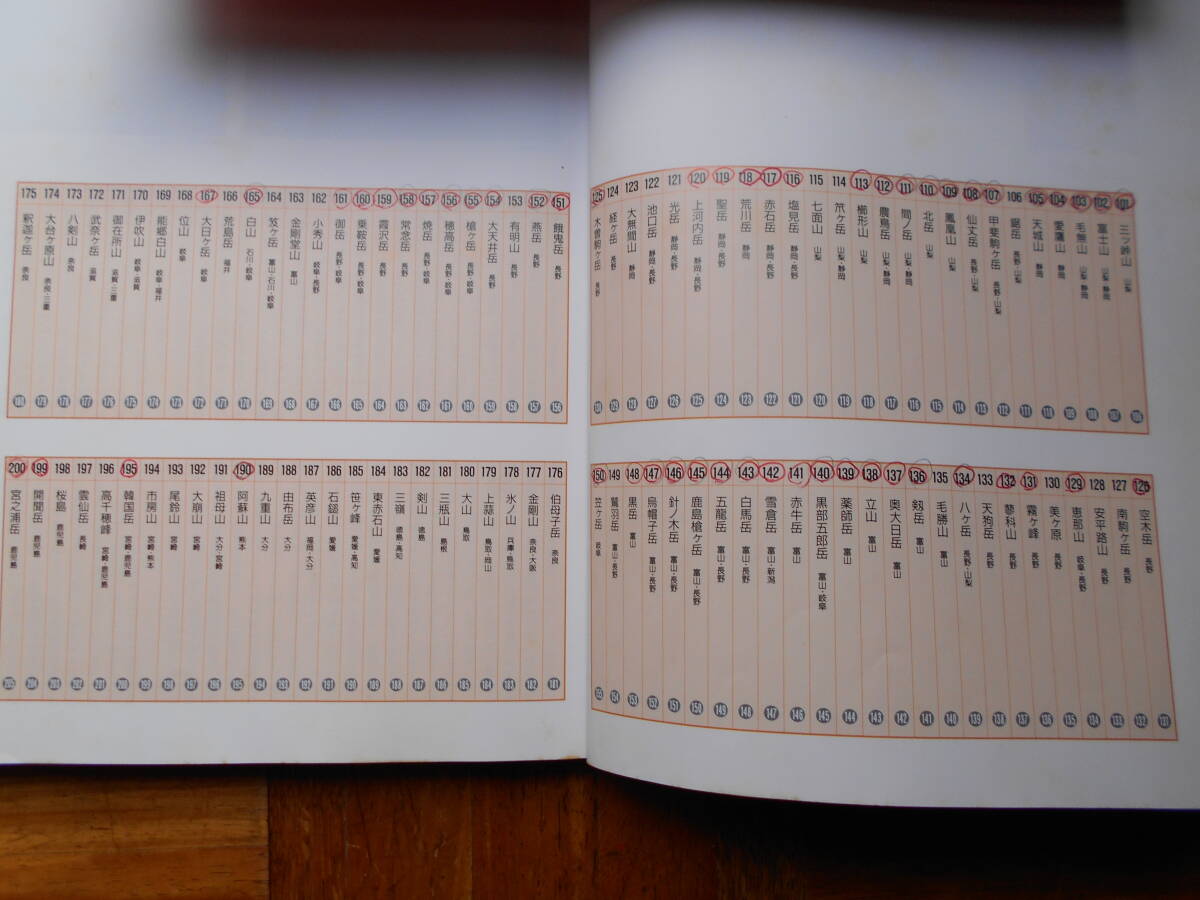 101 三ッ峠山 山梨 106
102 富士山 山梨・静岡 107
103 毛無山 山梨・静岡 108
104 愛鷹山 静岡 109
105 天城山 静岡 110
106 鋸岳 長野・山梨 111
107 甲斐駒ヶ岳 長野・山梨 112
108 仙丈岳 長野・山梨 113
109 鳳凰山 山梨 114
110 北岳 山梨 115
111 間ノ岳 山梨・静岡 116
112 農鳥岳 山梨・静岡 117
113 櫛形山 山梨 118
114 笊ヶ岳 山梨・静岡 119
115 七面山 山梨 120
116 塩見岳 静岡・長野 121
117 赤石岳 静岡・長野 122
118 荒川岳 静岡 123
119 聖岳 静岡・長野 124
120 上河内岳 静岡・長野 125
121 光岳 静岡・長野 126
122 池口岳 静岡・長野 127
123 大無間山 静岡 128
124 経ヶ岳 長野 129
125 木曽駒ヶ岳 長野 130
126 空木岳 長野 131
127 南駒ヶ岳 長野 132
128 安平路山 長野 133
129 恵那山 岐阜・長野 134
130 美ヶ原 長野 135
131 霧ヶ峰 長野 136
132 蓼科山 長野 137
133 天狗岳 長野 138
134 八ヶ岳 長野・山梨 139
135 毛勝山 富山 140
136 剱岳 富山 141
137 奥大日岳 富山 142
138 立山 富山 143
139 薬師岳 富山 144
140 黒部五郎岳 富山・岐阜 145
141 赤牛岳 富山 146
142 雪倉岳 富山・新潟 147
143 白馬岳 富山・長野 148
144 五龍岳 富山・長野 149
145 鹿島槍ヶ岳 富山・長野 150
146 針ノ木岳 富山・長野 151
147 烏帽子岳 富山・長野 152
148 黒岳 富山 153
149 鷲羽岳 富山・長野 154
150 笠ヶ岳 岐阜 155
151 餓鬼岳 長野 156
152 燕岳 長野 157
153 有明山 長野 158
154 大天井岳 長野 159
155 槍ヶ岳 長野・岐阜 160
156 穂高岳 長野・岐阜 161
157 焼岳 長野・岐阜 162
158 常念岳 長野 163
159 霞沢岳 長野 164
160 乗鞍岳 長野・岐阜 165
161 御岳 長野・岐阜 166
162 小秀山 岐阜・長野 167
163 金剛堂山 富山 168
164 笈ヶ岳 富山・石川・岐阜 169
165 白山 石川・岐阜 170
166 荒島岳 福井 171
167 大日ヶ岳 岐阜 172
168 位山 岐阜 173
169 能郷白山 岐阜・福井 174
170 伊吹山 岐阜・滋賀 175
171 御在所山 滋賀・三重 176
172 武奈ヶ岳 滋賀 177
173 八剣山 奈良 178
174 大台ヶ原山 奈良・三重 179
175 釈迦ヶ岳 奈良 180
176 伯母子岳 奈良 181
177 金剛山 奈良・大阪 182
178 氷ノ山 兵庫・鳥取 183
179 上蒜山 鳥取・岡山 184
180 大山 鳥取 185
181 三瓶山 島根 186
182 剣山 徳島 187
183 三嶺 徳島・高知 188
184 東赤石山 愛媛 189
185 笹ヶ峰 愛媛・高知 190
186 石鎚山 愛媛 191
187 英彦山 福岡・大分 192
188 由布岳 大分 193
189 九重山 大分 194
190 阿蘇山 熊本 195
191 祖母山 大分・宮崎 196
192 大崩山 宮崎 197
193 尾鈴山 宮崎 198
194 市房山 宮崎・熊本 199
195 韓国岳 宮崎・鹿児島 200
196 高千穂峰 宮崎・鹿児島 201
197 雲仙岳 長崎 202
198 桜島 鹿児島 203
199 開聞岳 鹿児島 204
200 宮之浦岳 鹿児島 205